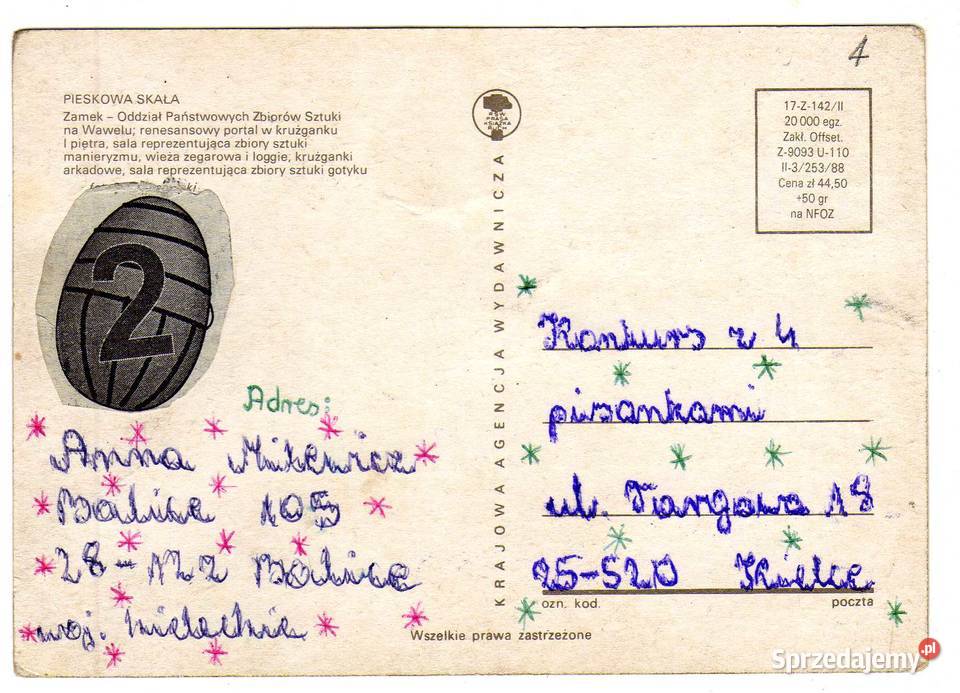 4
PIESKOWA SKAŁA
Zamek – Oddział Państwowych Zbiorów Sztuki
na Wawelu; renesansowy portal w krużganku
I piętra, sala reprezentująca zbiory sztuki
manieryzmu, wieża zegarowa i loggie, krużganki
arkadowe, sala reprezentująca zbiory sztuki gotyku
2
Adres:
Anna Mikewicz
Balice 105
28-122 Balice
woj. kieleckie
RSW
PRASA
KSIĄŻKA
RUCH
KRAJOWA AGENCJA WYDAWNICZA
17-Z-142/II
20 000 egz.
Zakł. Offset.
Z-9093 U-110
II-3/253/88
Cena zł 44,50
+50 gr
na NFOZ
Konkurs z 4
pisankami
ul. Targowa 18
25-520 Kielce
ozn. kod. poczta
Wszelkie prawa zastrzeżone
Sprzedajemy.pl